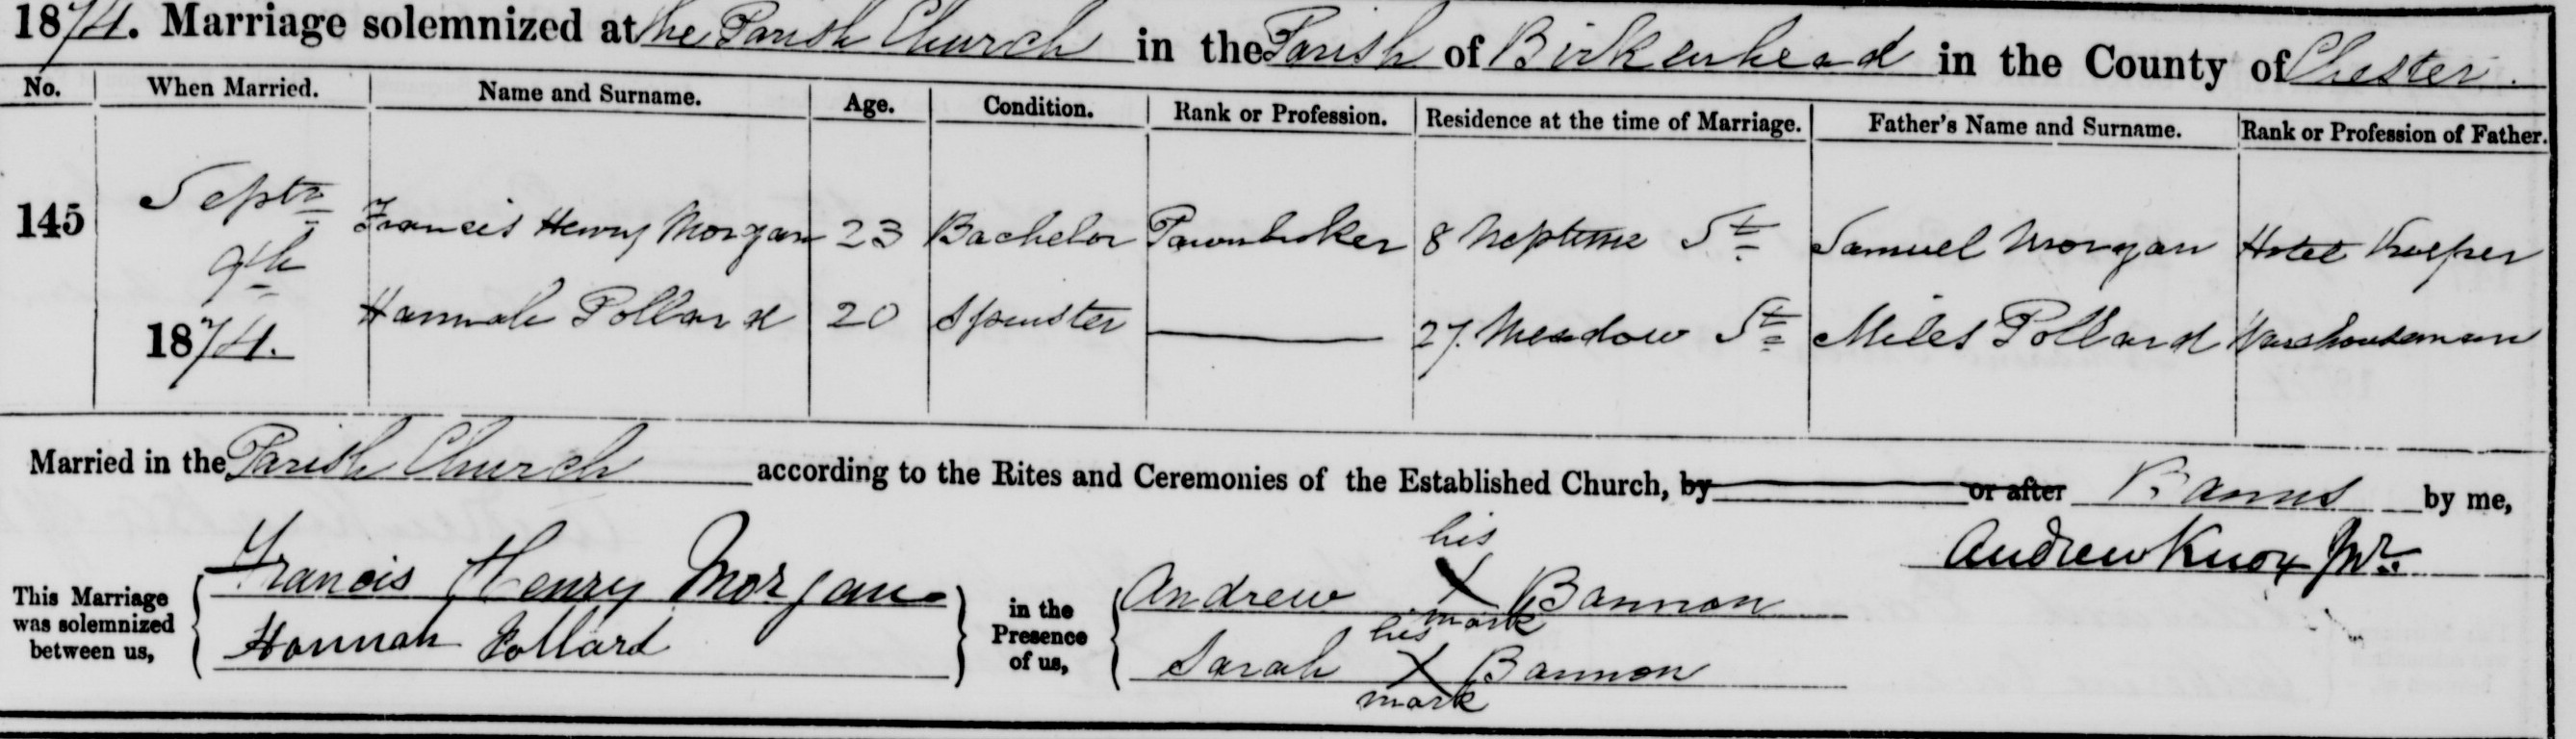 1874. Marriage solemnized at the Parish Church in the Parish of Birkenhead in the County of Chester.
No. When Married. Name and Surname. Age. Condition. Rank or Profession. Residence at the time of Marriage. Father's Name and Surname. Rank or Profession of Father.
145 Septr 9th 1874. Francis Henry Morgan 23 Bachelor Pawnbroker 8 Neptune St Samuel Morgan Hotel Keeper
Hannah Pollard 20 Spinster 27. Meadow St Miles Pollard Warehouseman
Married in the Parish Church according to the Rites and Ceremonies of the Established Church, by or after Banns by me,
Andrew Knox Jnr.
This Marriage was solemnized between us, Francis Henry Morgan Hannah Pollard
in the Presence of us, Andrew his X mark Bannon
Sarah his X mark Bannon